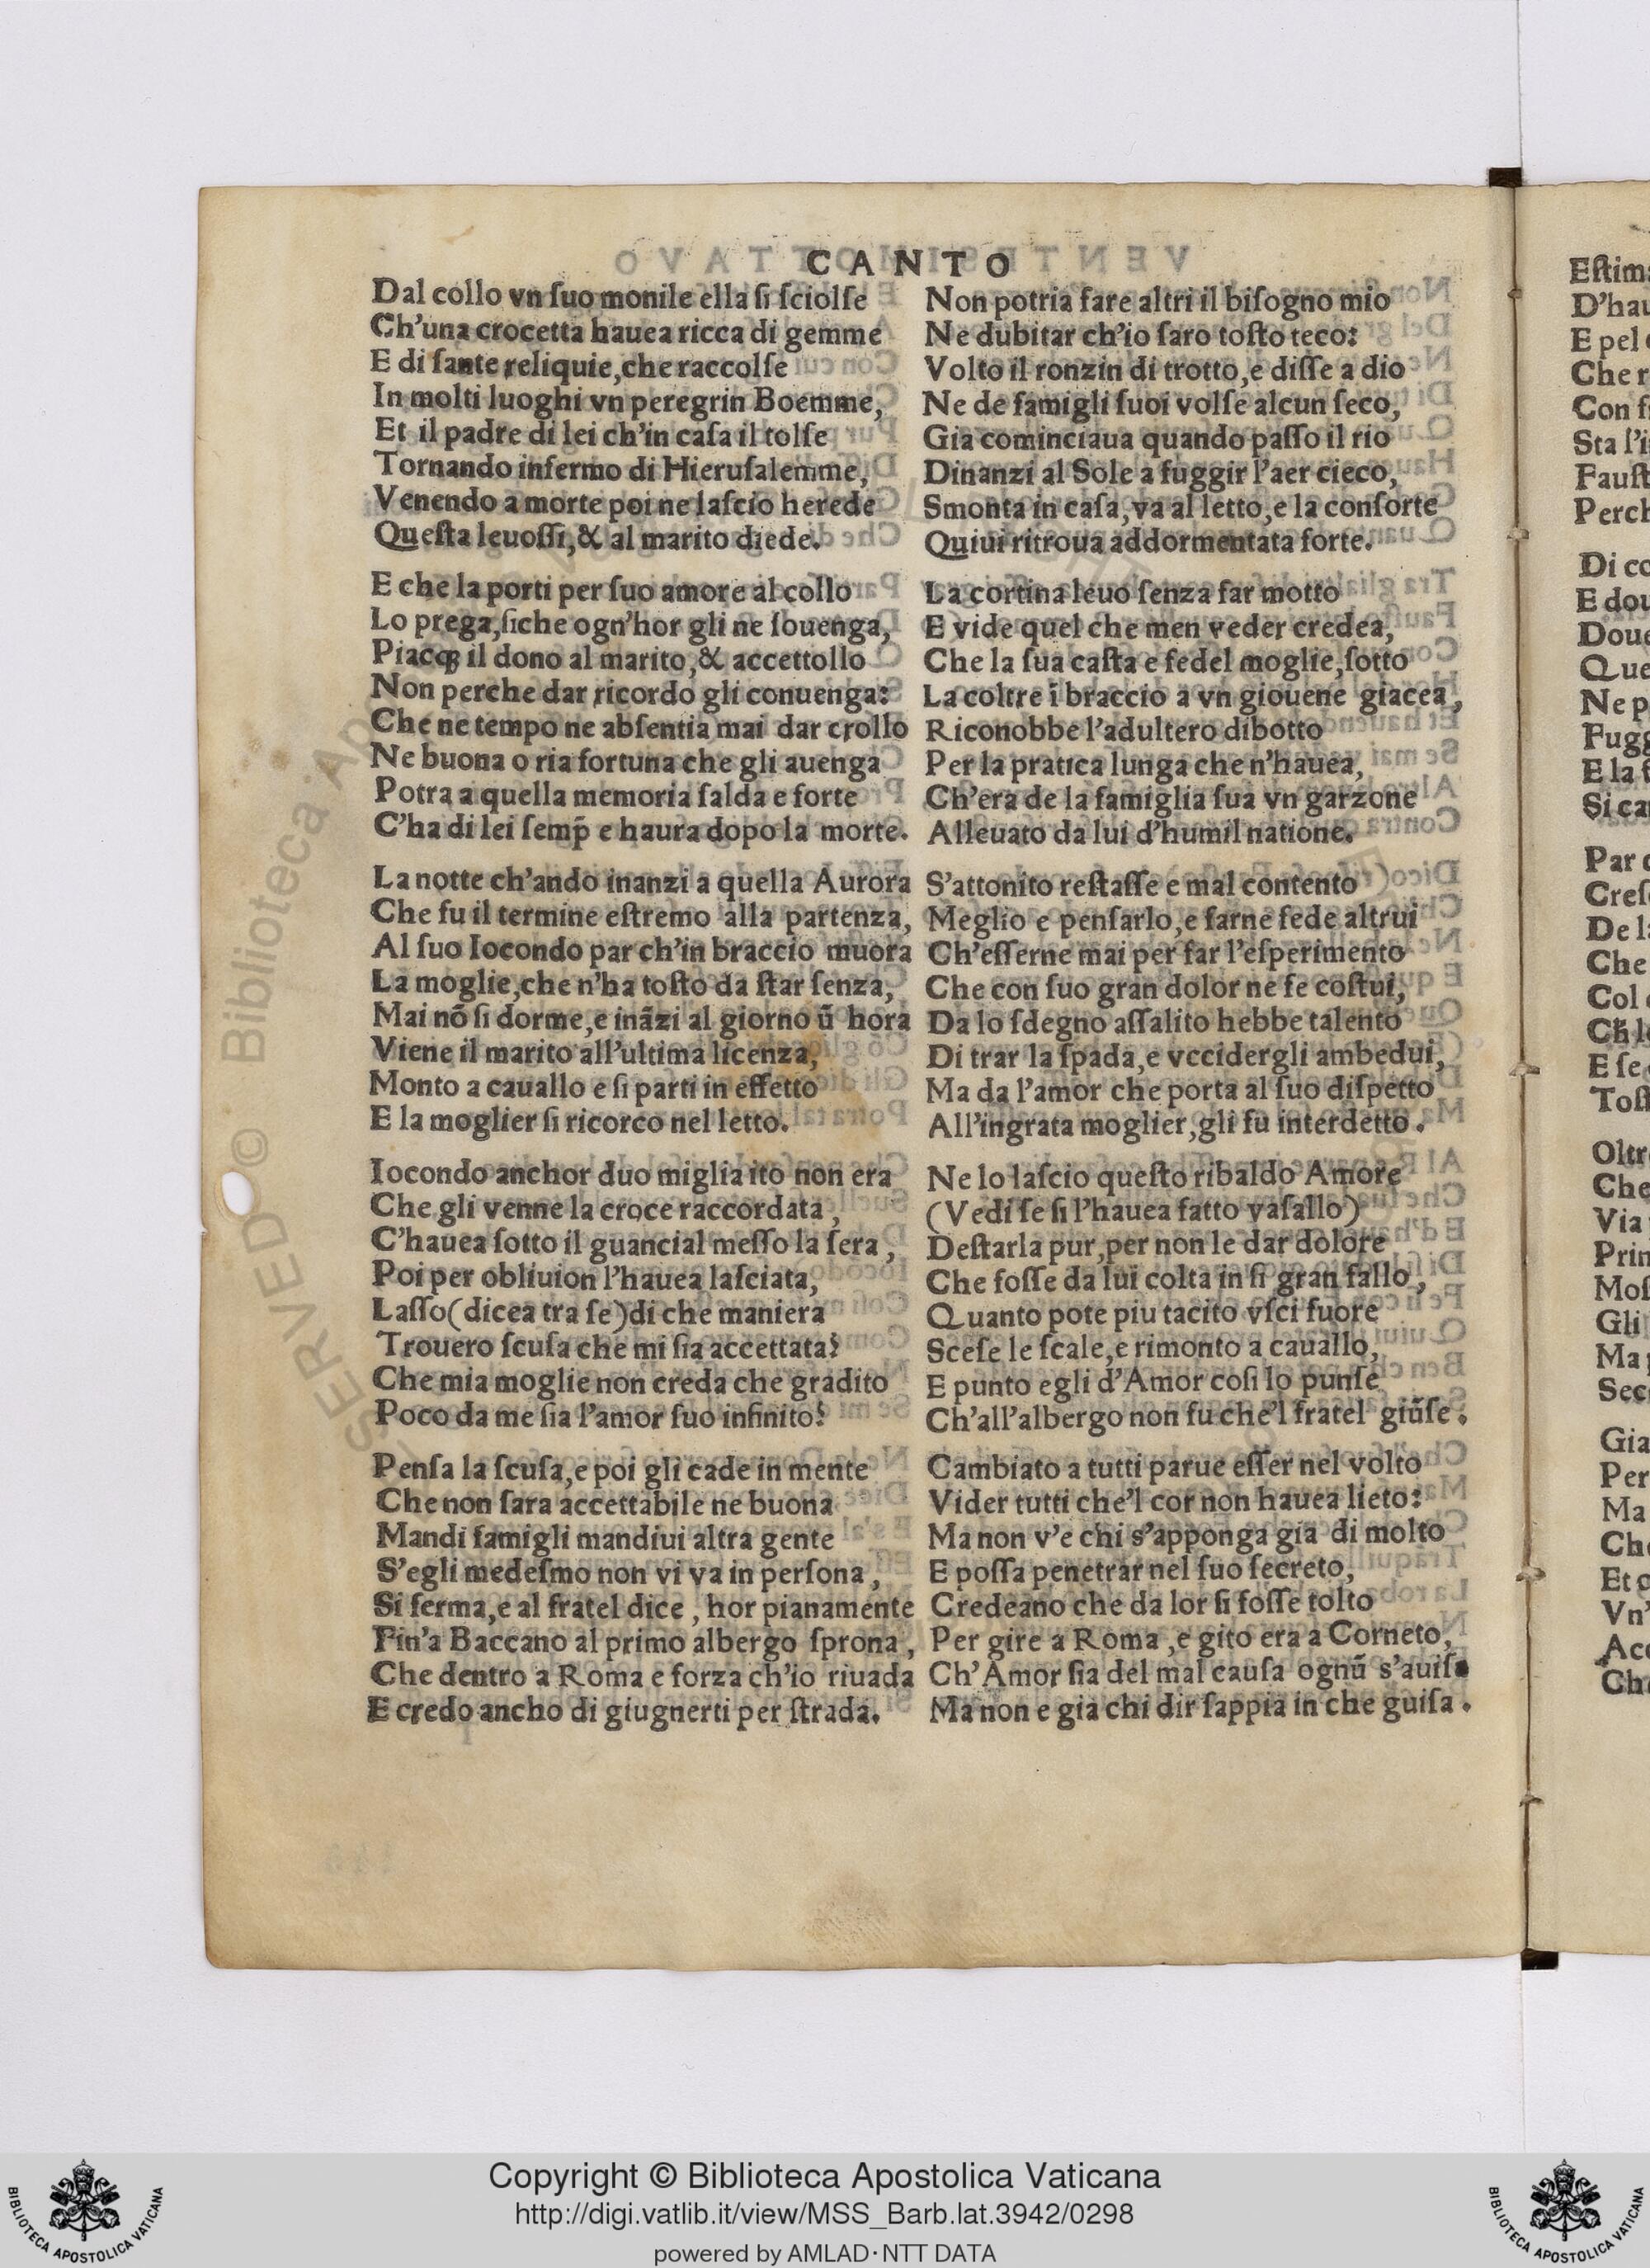 CANTO
Dal collo vn ſuo monile ella ſi ſciolſe
Ch'una crocetta hauea ricca di gemme
E di ſante reliquie,che raccolſe
In molti luoghi vn peregrin Boemme,
Et il padre di lei ch'in caſa il tolſe
Tornando infermo di Hieruſalemme,
Venendo a morte poi ne laſcio herede
Queſta leuoſſi,& al marito diede.
E che la porti per ſuo amore al collo
Lo prega,ſiche ogn'hor gli ne ſouenga,
Piacqꝫ il dono al marito,& accettollo
Non perche dar ricordo gli conuenga:
Che ne tempo ne abſentia mai dar crollo
Ne buona o ria fortuna che gli auenga
Potra a quella memoria ſalda e forte
C'ha di lei ſemp̃ e haura dopo la morte.
La notte ch'ando inanzi a quella Aurora
Che fu il termine eſtremo alla partenza,
Al ſuo Iocondo par ch'in braccio muora
La moglie,che n'ha toſto da ſtar ſenza,
Mai nõ ſi dorme,e inãzi al giorno ũ hora
Viene il marito all'ultima licenza,
Monto a cauallo e ſi parti in effetto
E la moglier ſi ricorco nel letto.
Iocondo anchor duo miglia ito non era
Che gli venne la croce raccordata,
C'hauea ſotto il guancial meſſo la ſera,
Poi per obliuion l'hauea laſciata,
Laſſo(dicea tra ſe)di che maniera
Trouero ſcuſa che mi ſia accettata?
Che mia moglie non creda che gradito
Poco da me ſia l'amor ſuo infinito?
Penſa la ſcuſa,e poi gli cade in mente
Che non ſara accettabile ne buona
Mandi famigli mandiui altra gente
S'egli medeſmo non vi va in perſona,
Si ferma,e al fratel dice, hor pianamente
Fin'a Baccano al primo albergo ſprona,
Che dentro a Roma e forza ch'io riuada
E credo ancho di giugnerti per ſtrada.
Non potria fare altri il biſogno mio
Ne dubitar ch'io ſaro toſto teco:
Volto il ronzin di trotto,e diſſe a dio
Ne de famigli ſuoi volſe alcun ſeco,
Gia cominciaua quando paſſo il rio
Dinanzi al Sole a fuggir l'aer cieco,
Smonta in caſa,va al letto,e la conſorte
Quiui ritroua addormentata forte.
La cortina leuo ſenza far motto
E vide quel che men veder credea,
Che la ſua caſta e fedel moglie,ſotto
La coltre ĩ braccio a vn giouene giacea,
Riconobbe l'adultero dibotto
Per la pratica lunga che n'hauea,
Ch'era de la famiglia ſua vn garzone
Alleuato da lui d'humil natione.
S'attonito reſtaſſe e mal contento
Meglio e penſarlo,e farne fede altrui
Ch'eſſerne mai per far l'eſperimento
Che con ſuo gran dolor ne fe coſtui,
Da lo ſdegno aſſalito hebbe talento
Di trar la ſpada,e vccidergli ambedui,
Ma da l'amor che porta al ſuo diſpetto
All'ingrata moglier,gli fu interdetto.
Ne lo laſcio queſto ribaldo Amore
(Vedi ſe ſi l'hauea fatto vaſallo)
Deſtarla pur,per non le dar dolore
Che foſſe da lui colta in ſi gran fallo,
Quanto pote piu tacito vſci fuore
Sceſe le ſcale,e rimonto a cauallo,
E punto egli d'Amor coſi lo punſe
Ch'all'albergo non fu che'l fratel giũſe.
Cambiato a tutti parue eſſer nel volto
Vider tutti che'l cor non hauea lieto:
Ma non v'e chi s'apponga gia di molto
E poſſa penetrar nel ſuo ſecreto,
Credeano che da lor ſi foſſe tolto
Per gire a Roma,e gito era a Corneto,
Ch'Amor ſia del mal cauſa ognũ s'auiſa
Ma non e gia chi dir ſappia in che guiſa.
Eſtim
D'hau
E pel
Che r
Con f
Sta l'i
Fauſt
Perch
Di co
E dou
Doue
Que
Ne p
Fugg
E la f
Si ca
Par c
Creſ
De la
Che
Col
Ch̃ l
E ſe
Toſt
Oltr
Che
Via
Prin
Moſ
Gli
Ma
Sec
Gia
Per
Ma
Che
Et
Vn'
Acc
Che
© Biblioteca Ap
SERVED
Copyright © Biblioteca Apostolica Vaticana
http://digi.vatlib.it/view/MSS_Barb.lat.3942/0298
powered by AMLAD·NTT DATA
BIBLIOTECA APOSTOLICA VATICANA
BIBLIOTECA APOSTOLICA VATICANA